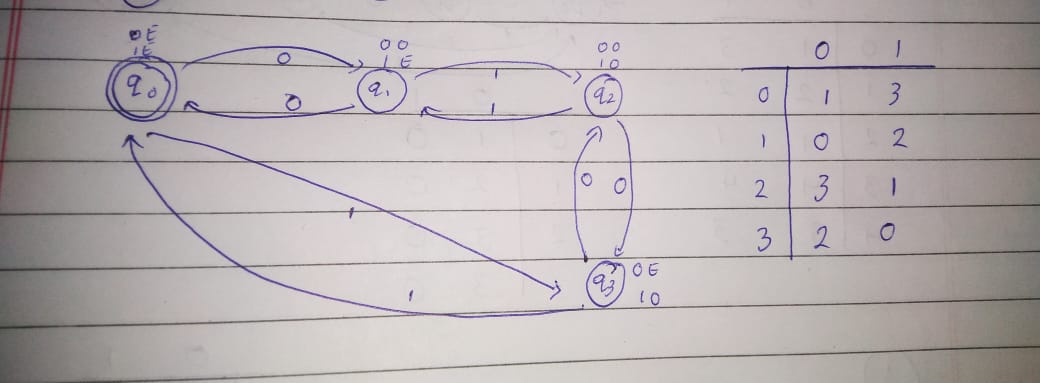 0E
1E
q0
0
0
00
1E
q1
1
1
00
10
q2
0 0
1
1
q3
0E
10
0 1
0 1 3
1 0 2
2 3 1
3 2 0